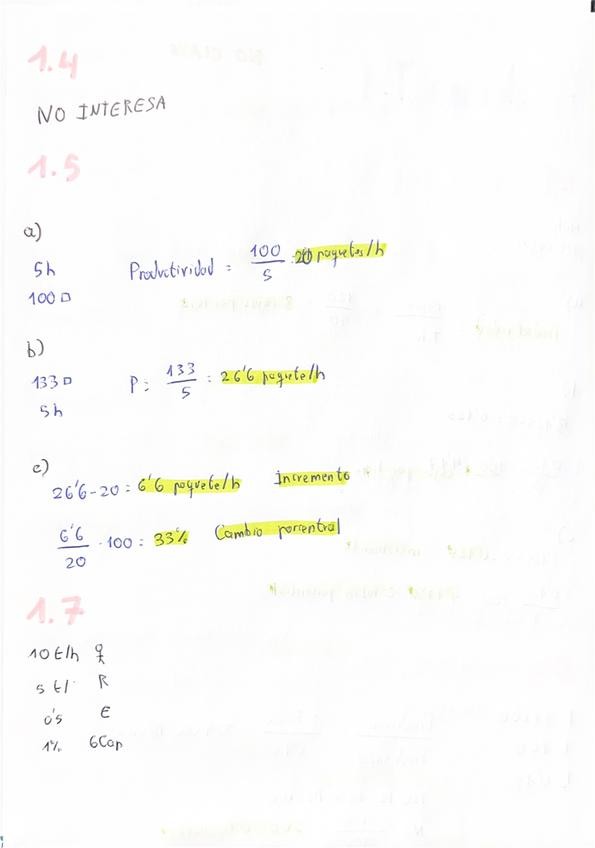 1.4
NO INTERESA
1.5
a)
5h
100 □
Productividad = 100/5 = 20 paquetes/h
b)
133 □
5h
P = 133/5 = 26'6 paquete/h
c)
26'6-20 = 6'6 paquete/h Incremento
6'6/20 · 100 = 33% Cambio porcentual
1.7
10 t/h
5 t/ R
0'5 E
1% 6Cap